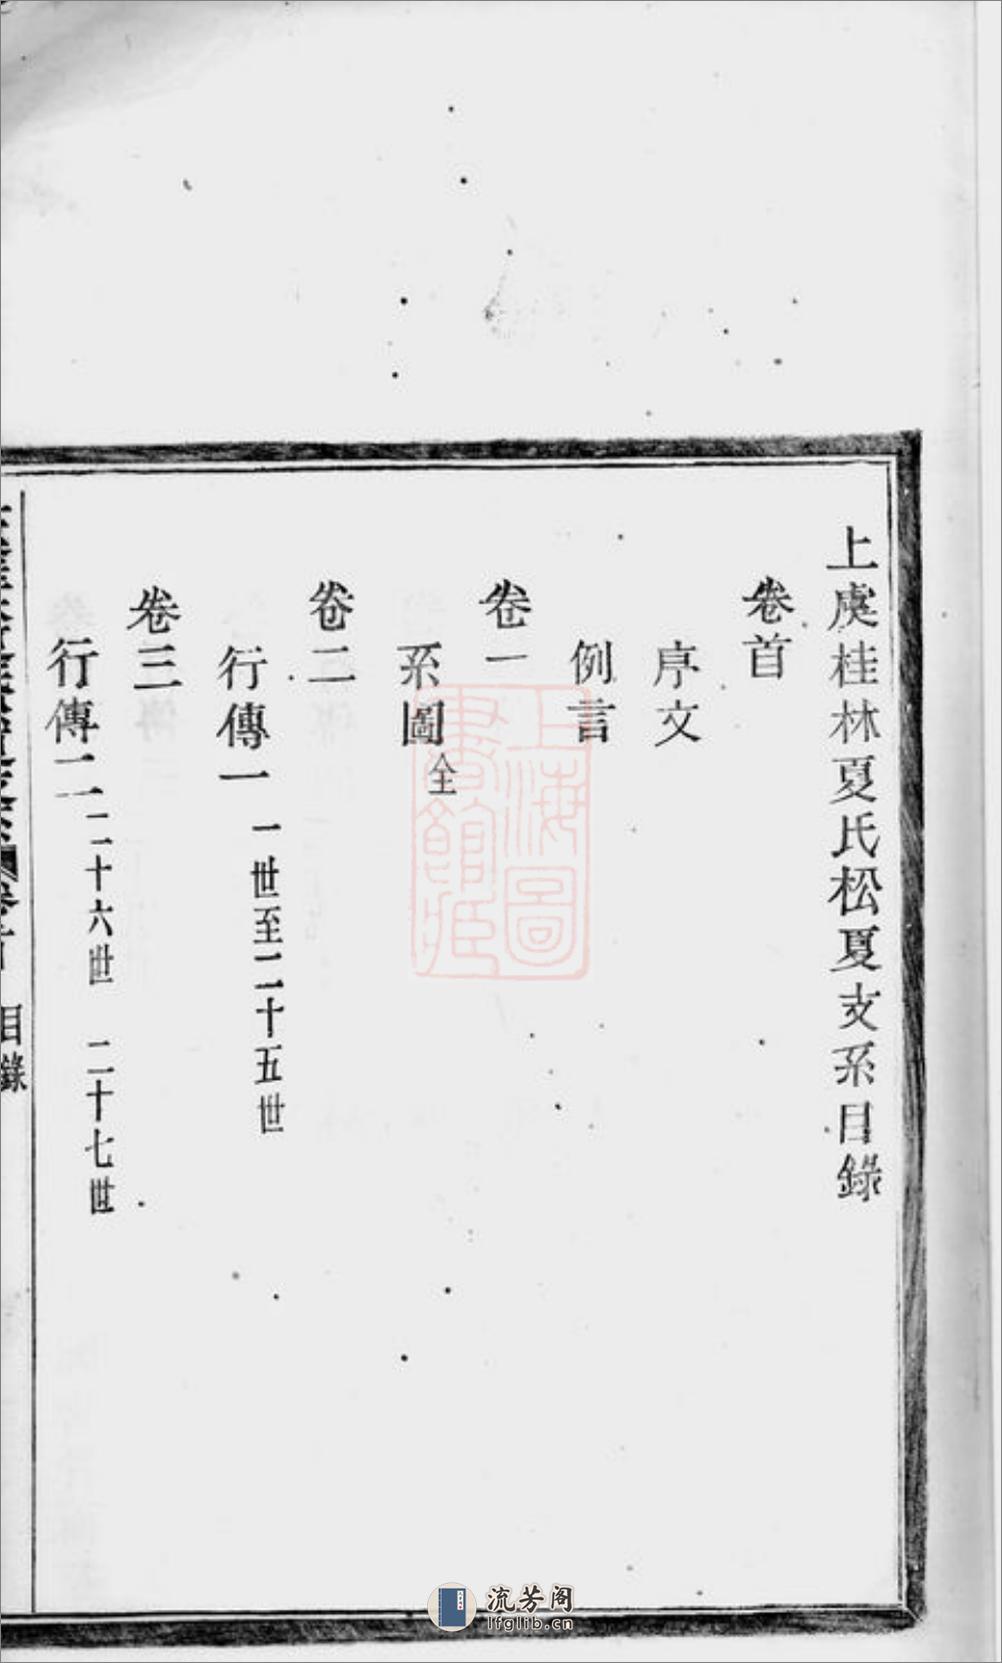 上虞桂林夏氏松夏支系目錄
卷首
序文
例言
卷一
系圖全
卷二
行傳一 一世至二十五世
卷三
行傳二 二十六世 二十七世
目錄
上海圖書館藏
流芳阁
lfglib.cn